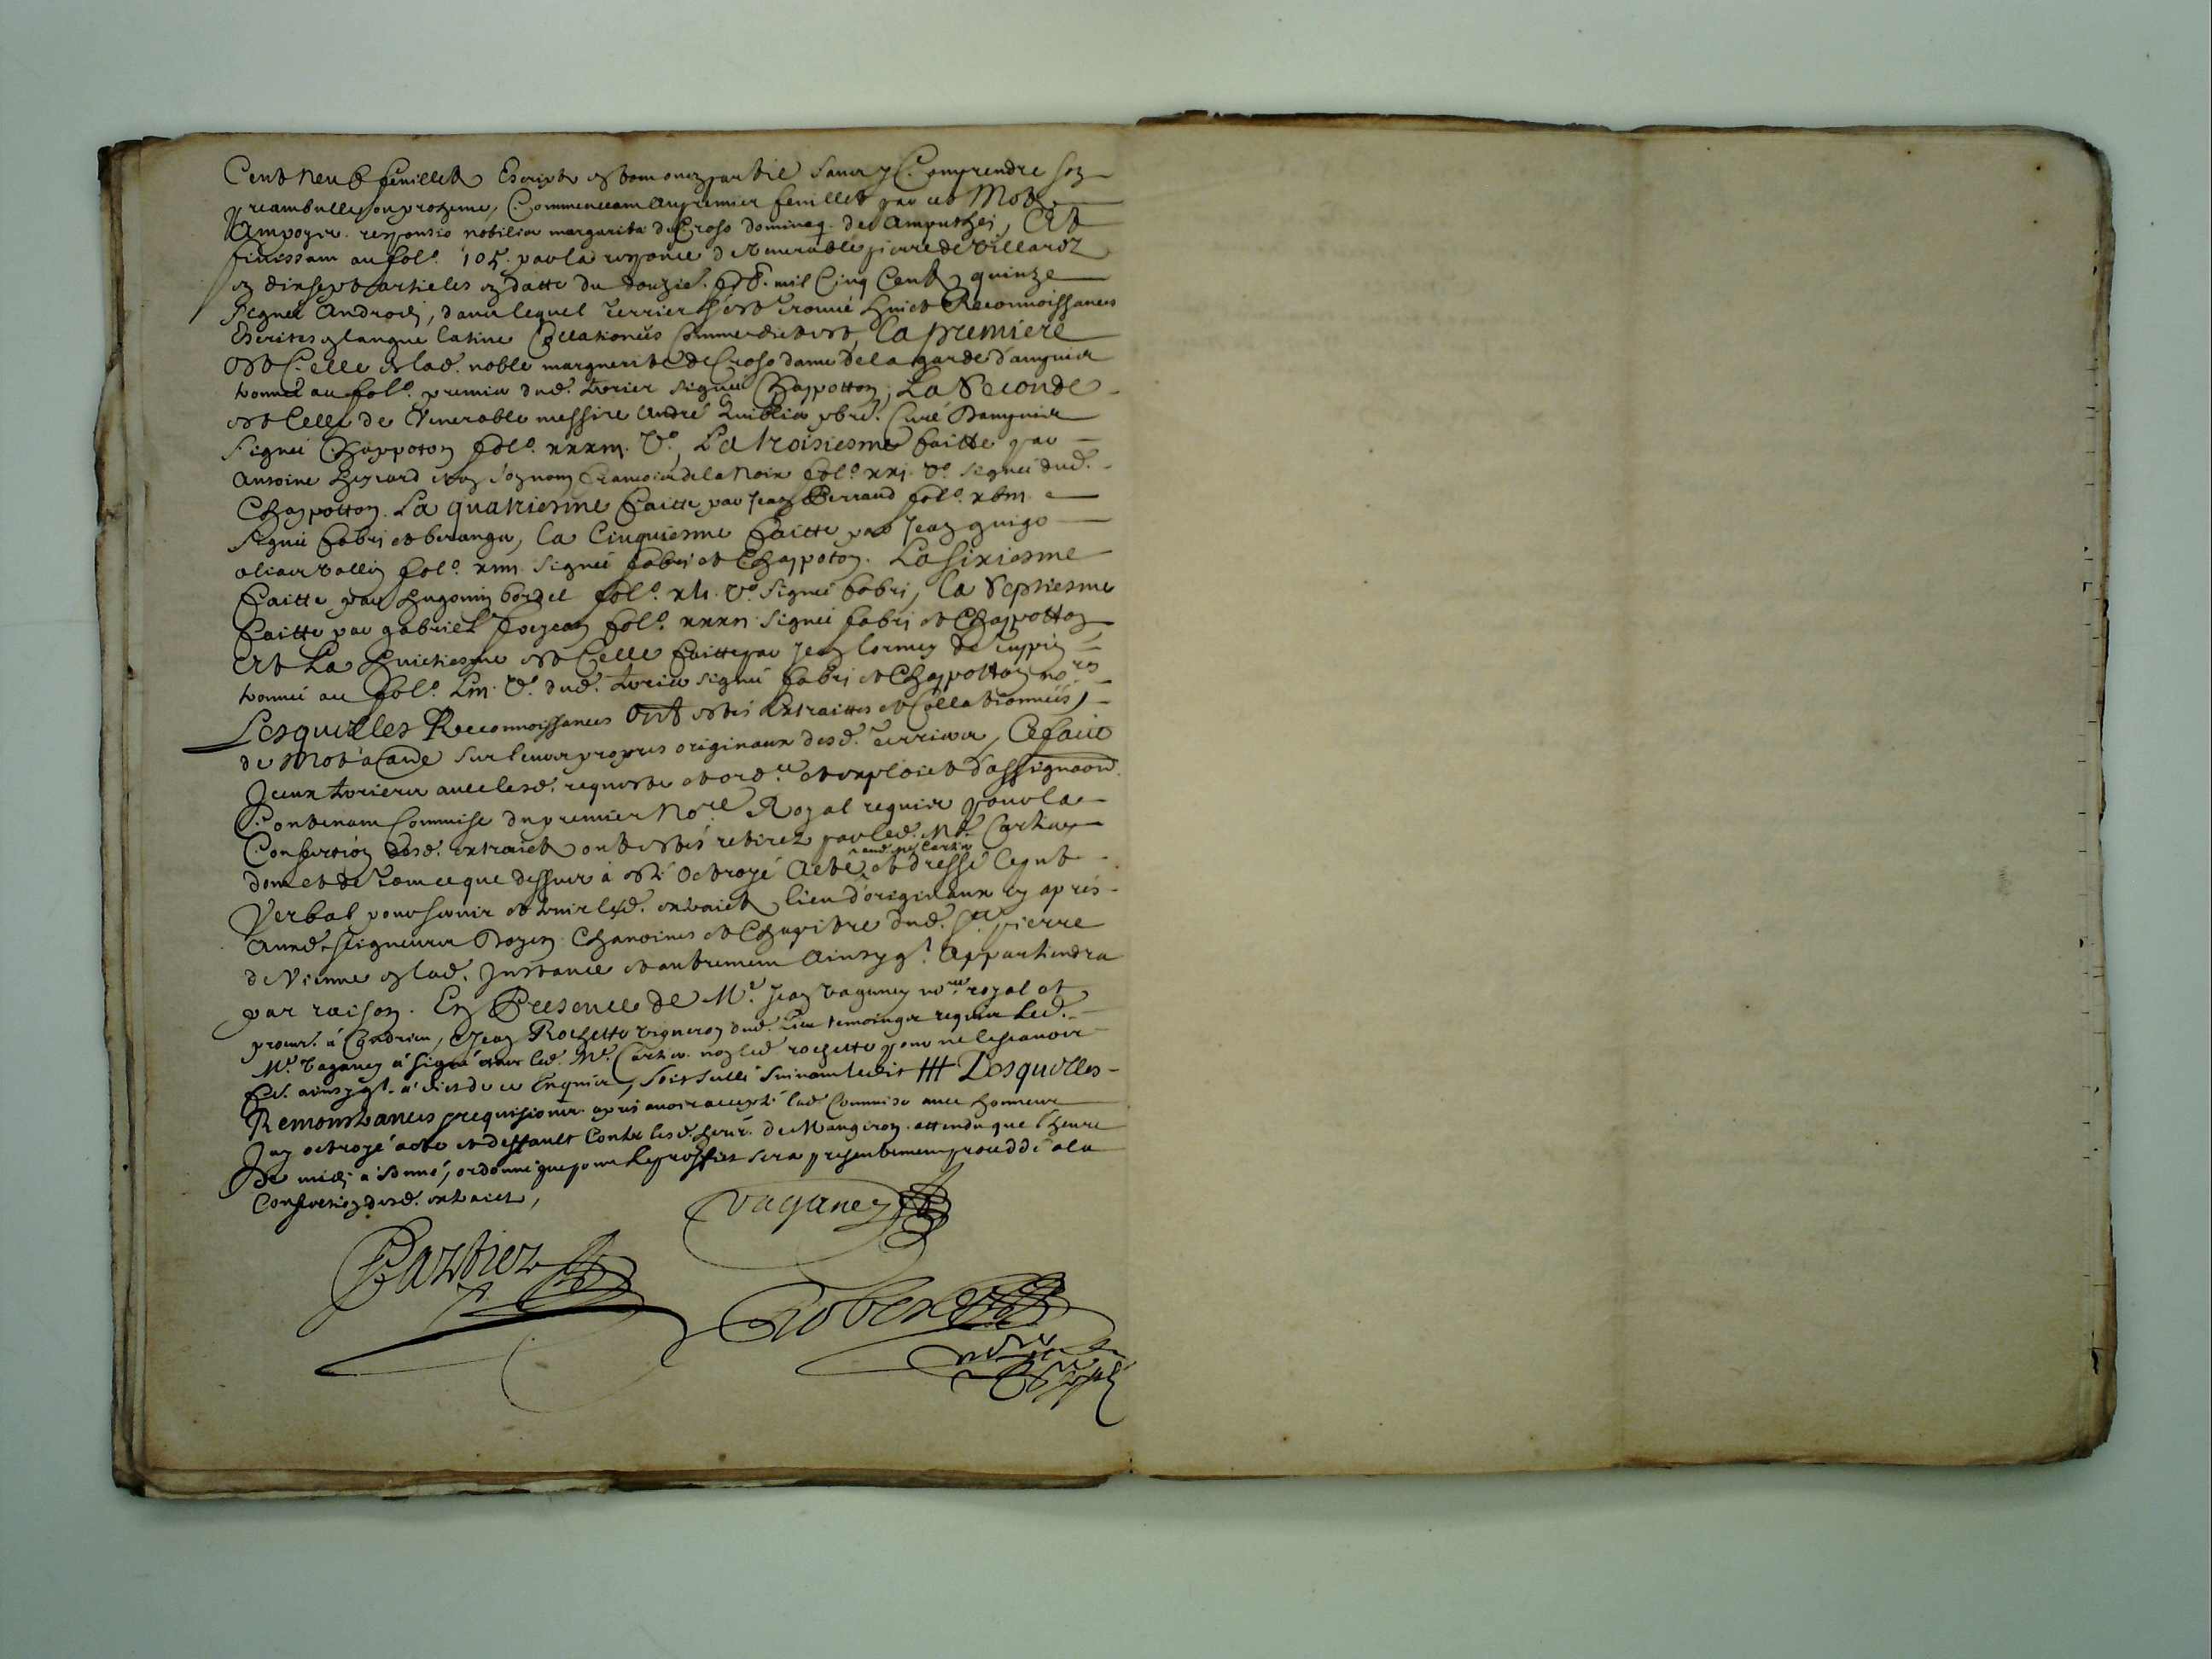 Cent neuf feuillets Escripts en tout ou en partie sans y Comprendre son
preambulle ou proheme, Commenceant au premier feuillet par ces Mots
Ampogii. responsio nobilis margarita de Croso domineq. de Amputhei, Et
finissant au fol.º 105. par la responce de Venerable pierre de Villard
en dixsept articles en datte du douzie. mil Cinq Cents quinze
Signé Androdi, dans lequel Terrier s'est trouvé huict Reconnoissances
Escrites en langue latine Collationées Comme dict est, La premiere
est Celle de lad. noble marguerite de Croso dame de la garde d'ampuis
tonnée au fol.º premier dud. terrier signée Chappotton, La Seconde
est Celle de Venerable messire André Quiblier pbre. Curé Dampuis
Signée Chappoton fol.º xxxiii. Vº, La troisiesme faitte par
Antoine Girard et en son nom françois de la Noir fol.º xxj. vº signée dud.
Chappotton. La quatriesme faitte par Jean Perraud fol.º xviii
Signée fabri et beranger, la Cinquiesme faitte par Jean guigo
alias Vallin fol.º xiiii. signée fabri et Chappoton. La Sixiesme
faitte par hugonin fol.º xli. vº. signée fabri, la Septiesme
faitte par gabriel fol.º xxxii signée fabri et Chappotton
Et La huictiesme est Celle faitte par Jean de Tuppin
tonnée au fol.º Liii. vº. dud. terrier signée fabri et Chappotton no.res
Lesquelles Reconnoissances Ont estés Extraittes et Collationnées
de Mot à autre sur leurs propres originaux desd. Terriers, Ce faict
Iceux terriers avec lesd. requeste et ord.ce et exploict d'assignaõn
Contenant Commise du premier No.re Royal requis pour la
Confection desd. extraicts ont estés retirez par led. Me. Cartier
aud. me Cartier
dont et de Tout ce que dessus à esté Octroyé Acte et dressé le pnt
Verbal pour servir et tenir lesd. extraicts lieu d'originaux cy apres
Ausd. Seigneurs Doyen Chanoines et Chapitre dud. St. pierre
de Vienne en lad. Instance et autrement Ainsy q.l Appartiendra
par raison. En Presence de Me. Jean Vaganey no.re royal et
procur. à Condrieu, Jean Rochette vigneron dud. Lieu temoings requis Led.
Me. Vaganey à signé avec led. Me. Cartier. non led rochette pour ne le scavoir
fe. ainsy q.l à dict de ce Enquis, Soit suivant ledit ### Desquelles
Remonstances requisitions apres avoir accepté lad Commise avec honneur
Jay octroyé acte et deffault Contre lesd. de Maugiron attendu que l'heure
De midi à sonné, ordonné que pour Le proffict sera presentement procedde a la
Confection desd. extraicts,
Vaganey
Cartier
Robert